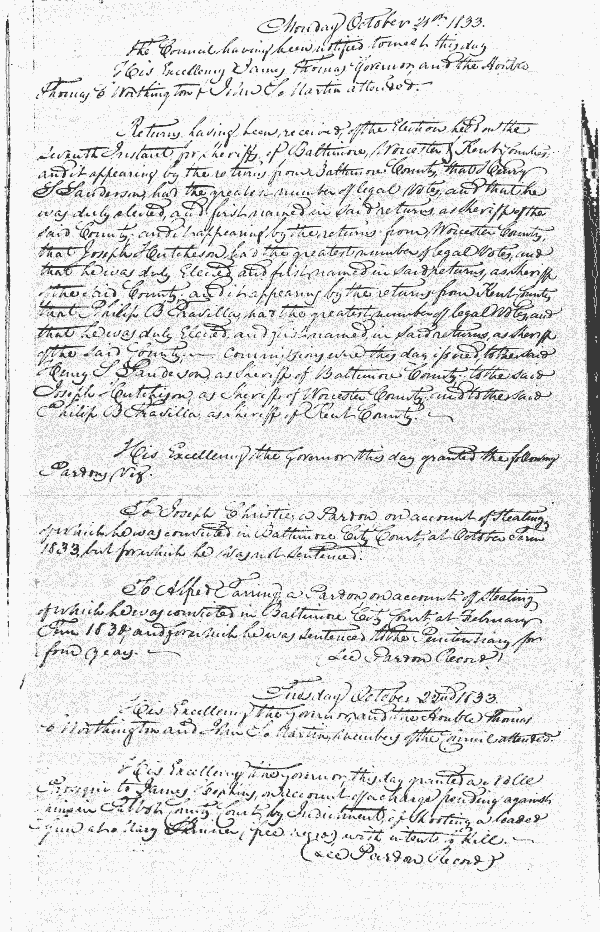 Monday October 21st 1833.
The Council having been notified to meet this day
His Excellency James Thomas Governor and the Honble
Thomas C Worthington & John S. Martin attended.
Returns having been received of the Election held on the
Seventh Instant for Sheriff of Baltimore, Worcester & Kent Counties,
and it appearing by the returns from Baltimore County that Henry
S Sanderson, had the greatest number of legal Votes, and that he
was duly elected, and first named in said returns as Sheriff of the
said County, and it appearing by the returns from Worcester County,
that Joseph Hutcheson, had the greatest number of legal Votes, and
that he was duly Elected and first named in said returns, as Sheriff
of the said County, and it appearing by the returns from Kent County
that Philip B Travilla, had the greatest number of legal Votes, and
that he was duly Elected, and first named, in said returns, as Sheriff
of the said County, Commissions were this day issued to the said
Henry S Sanderson, as Sheriff of Baltimore County, to the said
Joseph Hutchison, as Sheriff of Worcester County, and to the said
Philip B Travilla, as Sheriff of Kent County.
His Excellency the Governor this day granted the following
Pardons, Viz.
To Joseph Christie, a Pardon on account of Stealing,
of which he was convicted in Baltimore City Court, at October Term
1833, but for which he was not sentenced.
To Alfred a Pardon on account of Stealing
of which he was convicted in Baltimore City Court at February
Term and for which he was sentenced to the Penitentiary for
four years.
(See Pardon Record)
Tuesday October 22nd 1833
His Excellency the Governor and the Honble Thomas
C Worthington and John S. Martin, members of the Council attended.
His Excellency the Governor this day granted a Nolle
Prosequi to James Hopkins, on account of a charge pending against
him in Talbot County Court, by Indictment, of shooting a loaded
gun at Mary Skinner, (free negro) with intent to kill.
(See Pardon Record)